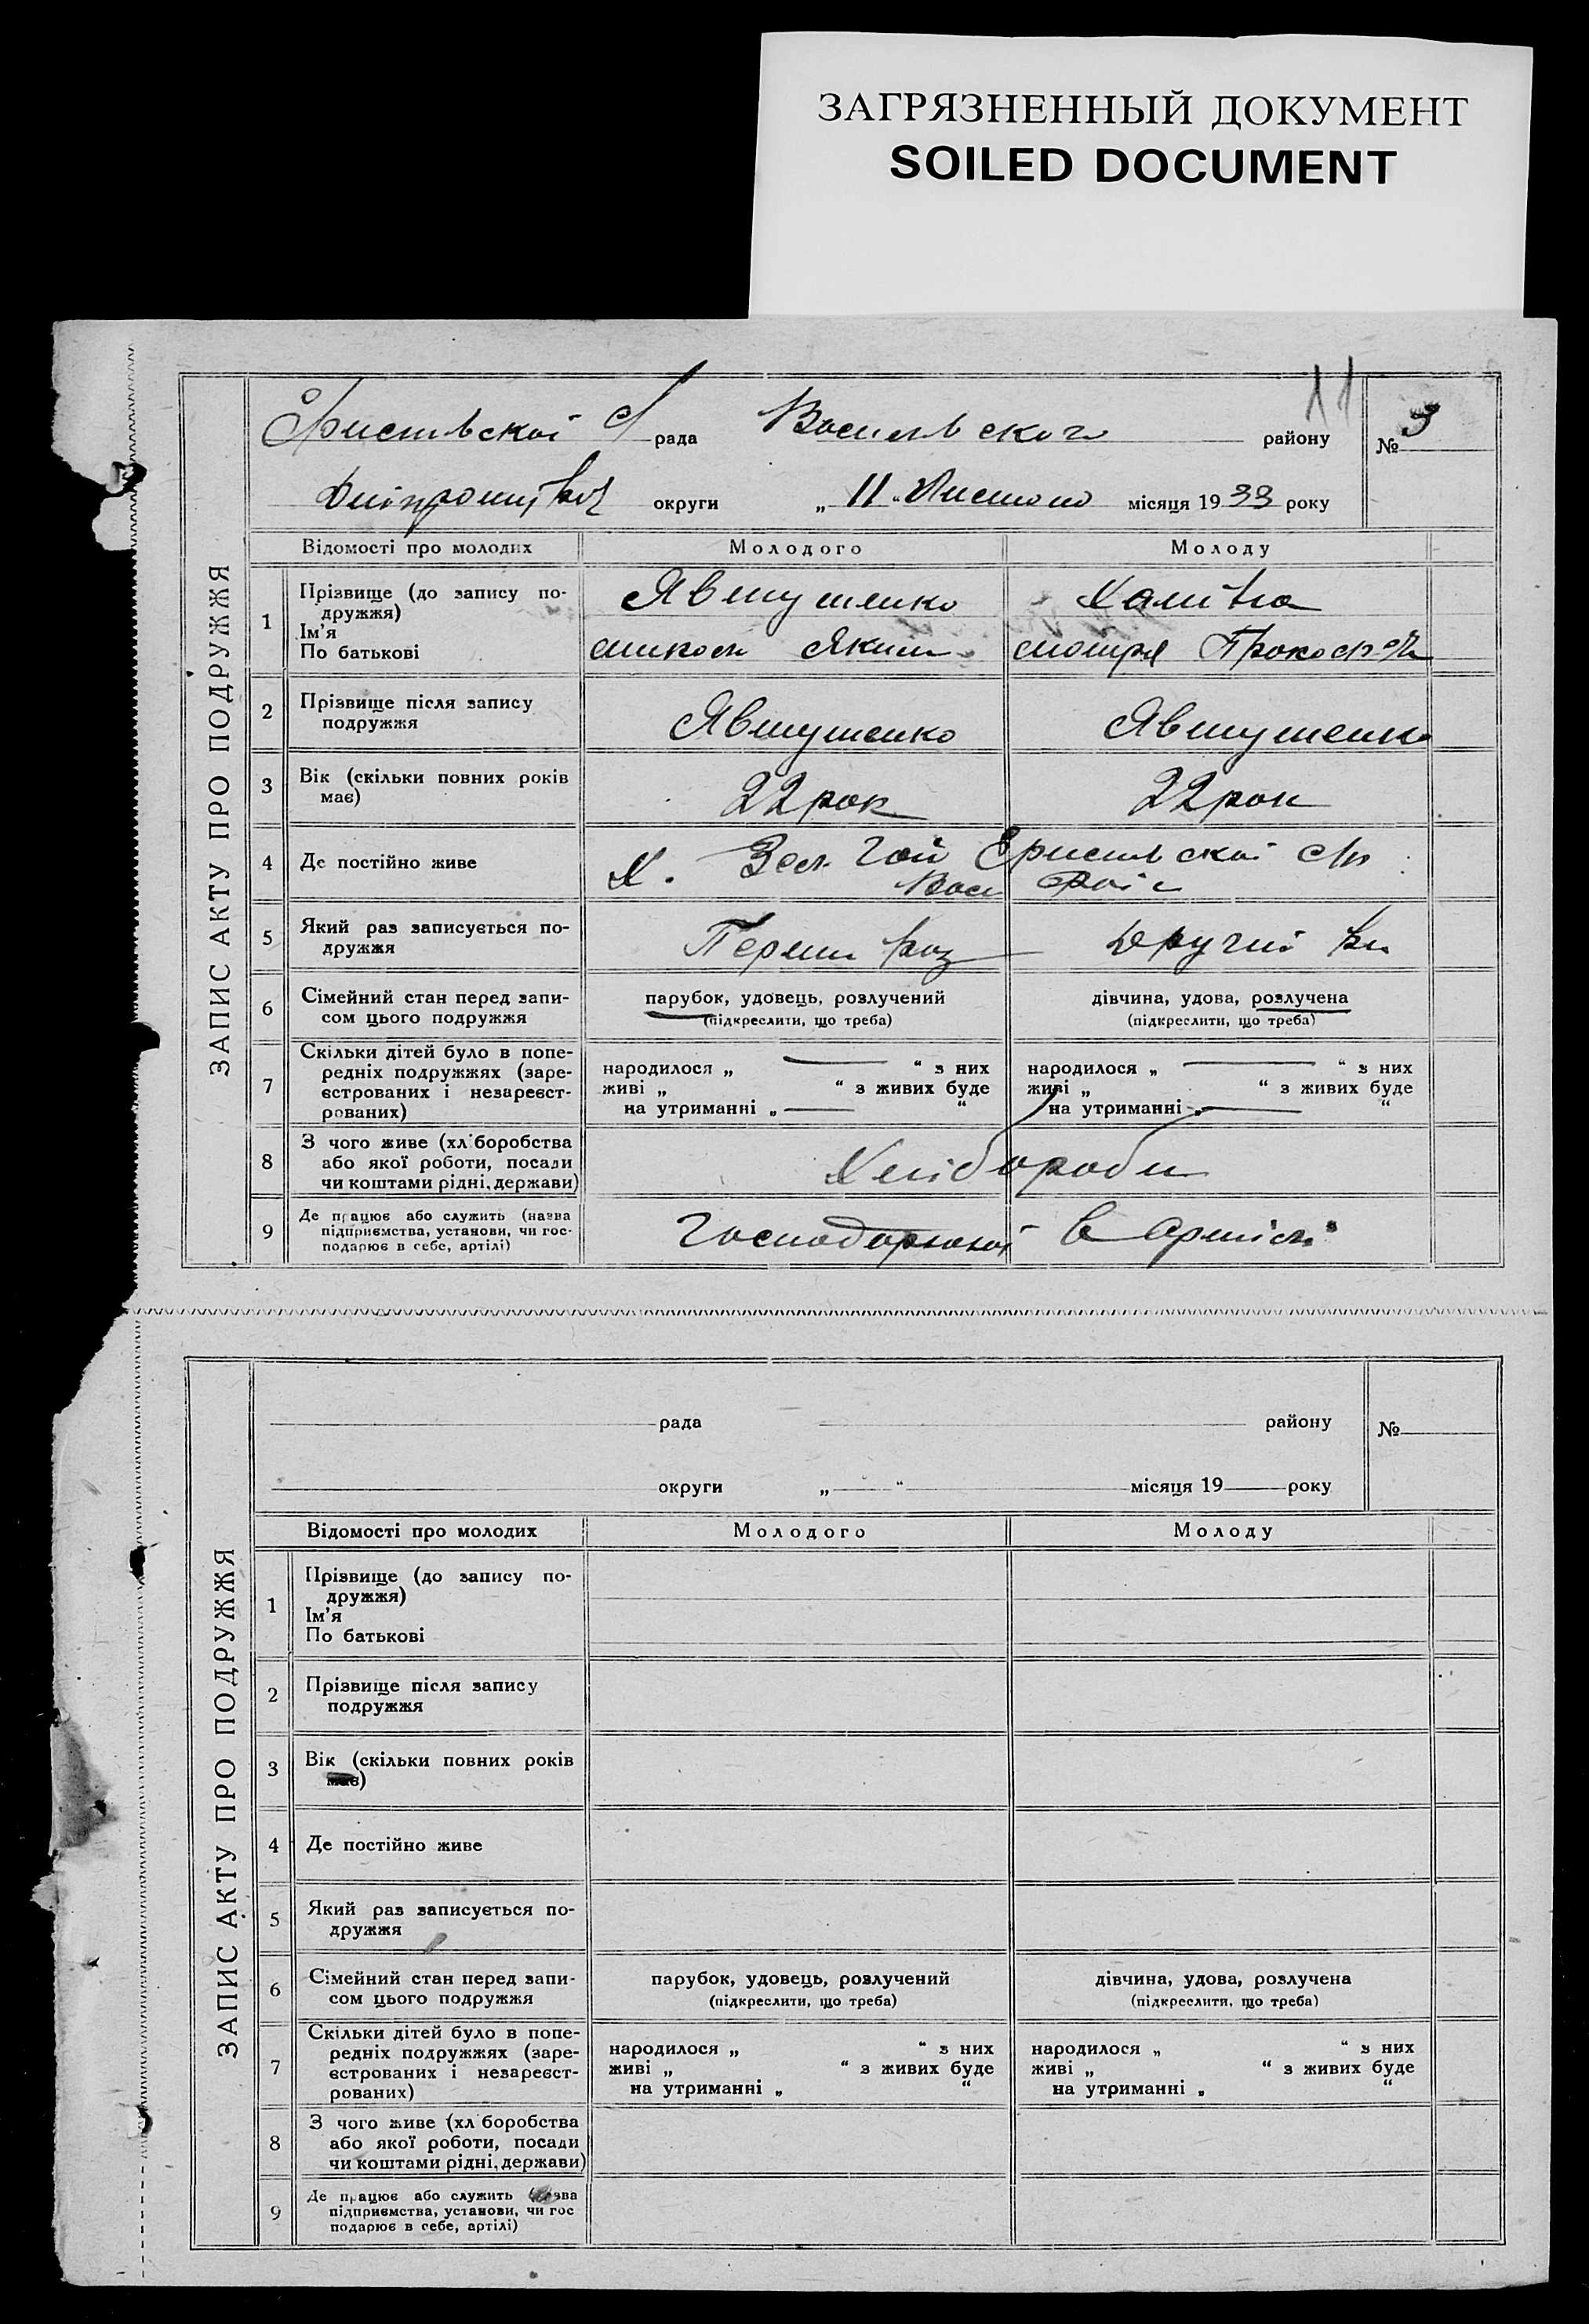 ЗАГРЯЗНЕННЫЙ ДОКУМЕНТ
SOILED DOCUMENT
11
рада Васильвского району № 3
округи „ 11 “ місяця 19 33 року
ЗАПИС АКТУ ПРО ПОДРУЖЖЯ
Відомості про молодих Молодого Молоду
1 Прізвище (до запису по-
дружжя)
Ім'я
По батькові
Явтушенко
Яким Мотря
2 Прізвище після запису
подружжя
Явтушенко Явтушенко
3 Вік (скільки повних років
має)
22 рок 22 рок
4 Де постійно живе
Х. Зел. Гай Єристівскої с/р
Вас
5 Який раз записується по-
дружжя
Перши раз Другий
6 Сімейний стан перед запи-
сом цього подружжя
парубок, удовець, розлучений
(підкреслити, що треба)
дівчина, удова, розлучена
(підкреслити, що треба)
7 Скільки дітей було в попе-
редніх подружжях (заре-
єстрованих і незареєст-
рованих)
народилося „ — “ з них
живі „ “ з живих буде
на утриманні „ — “
народилося „ — “ з них
живі „ “ з живих буде
на утриманні „ — “
8 З чого живе (хліборобства
або якої роботи, посади
чи коштами рідні, держави)
Хлібороби
9 Де працює або служить (назва
підприємства, установи, чи гос-
подарює в себе, артілі)
в артілі
рада району №
округи „ “ місяця 19 року
ЗАПИС АКТУ ПРО ПОДРУЖЖЯ
Відомості про молодих Молодого Молоду
1 Прізвище (до запису по-
дружжя)
Ім'я
По батькові
2 Прізвище після запису
подружжя
3 Вік (скільки повних років
має)
4 Де постійно живе
5 Який раз записується по-
дружжя
6 Сімейний стан перед запи-
сом цього подружжя
парубок, удовець, розлучений
(підкреслити, що треба)
дівчина, удова, розлучена
(підкреслити, що треба)
7 Скільки дітей було в попе-
редніх подружжях (заре-
єстрованих і незареєст-
рованих)
народилося „ “ з них
живі „ “ з живих буде
на утриманні „ “
народилося „ “ з них
живі „ “ з живих буде
на утриманні „ “
8 З чого живе (хліборобства
або якої роботи, посади
чи коштами рідні, держави)
9 Де працює або служить (назва
підприємства, установи, чи гос
подарює в себе, артілі)